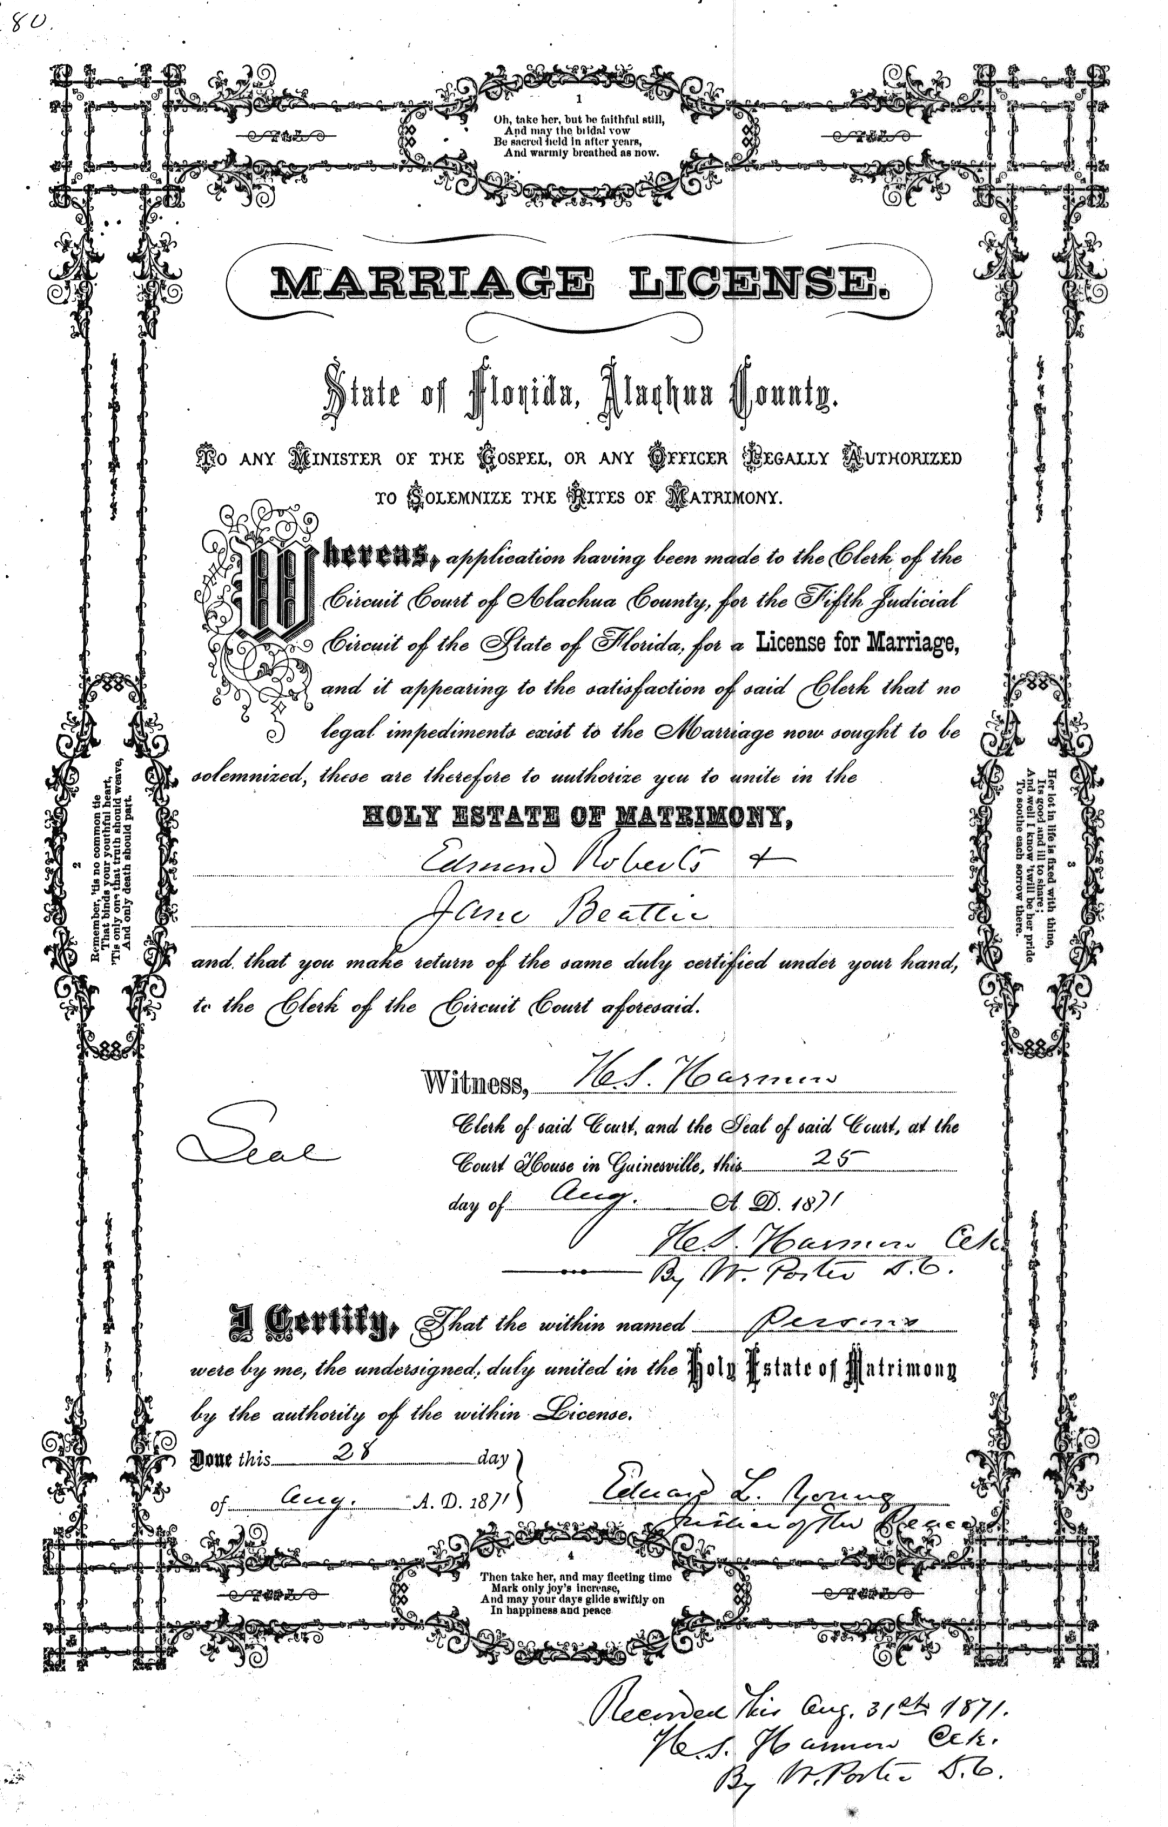 80.
1
Oh, take her, but be faithful still,
And may the bridal vow
Be sacred held in after years,
And warmly breathed as now.
MARRIAGE LICENSE.
State of Florida, Alachua County.
TO ANY MINISTER OF THE GOSPEL, OR ANY OFFICER LEGALLY AUTHORIZED
TO SOLEMNIZE THE RITES OF MATRIMONY.
Whereas, application having been made to the Clerk of the
Circuit Court of Alachua County, for the Fifth Judicial
Circuit of the State of Florida, for a License for Marriage,
and it appearing to the satisfaction of said Clerk that no
legal impediments exist to the Marriage now sought to be
solemnized, these are therefore to authorize you to unite in the
HOLY ESTATE OF MATRIMONY,
Edmund Roberts +
Jane Beattie
and that you make return of the same duly certified under your hand,
to the Clerk of the Circuit Court aforesaid.
2
Remember, 'tis no common tie
That binds your youthful heart,
'Tis only one that truth should weave,
And only death should part.
3
Her lot in life is fixed with thine,
Its good and ill to share;
And well I know 'twill be her pride
To soothe each sorrow there.
Witness, H.S. Harmon
Clerk of said Court, and the Seal of said Court, at the
Seal
Court House in Gainesville, this 25
day of Aug. A. D. 1871
H.S. Harmon Clk.
By W. Porter D.C.
I Certify, That the within named Persons
were by me, the undersigned, duly united in the Holy Estate of Matrimony
by the authority of the within License.
Done this 28 day
of Aug. A. D. 1871
Edward L. Young
Justice of the Peace
4
Then take her, and may fleeting time
Mark only joy's increase,
And may your days glide swiftly on
In happiness and peace
Recorded this Aug. 31st 1871.
H.S. Harmon Clk.
By W. Porter D.C.